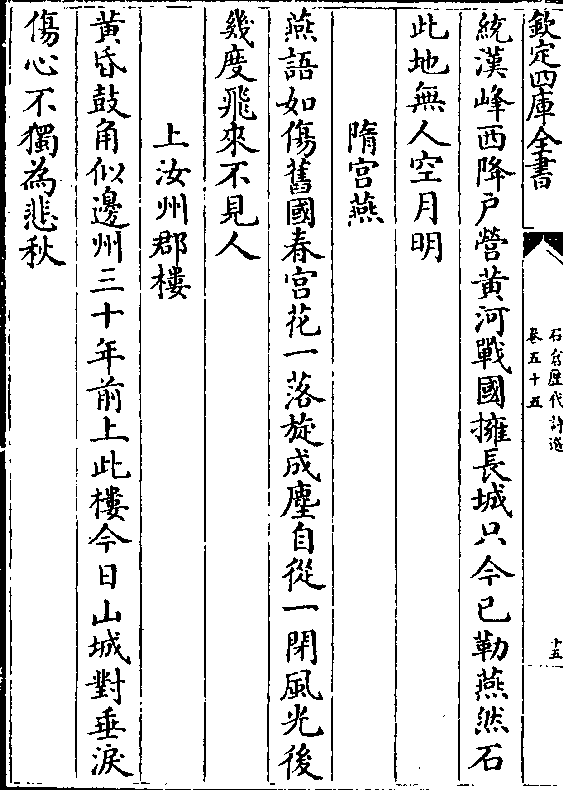 欽定四庫全書
石倉歷代詩選
卷五十五
十五
統漢峰西降户營黄河戰國擁長城只今已勒燕然石
此地無人空月明
隋宫燕
燕語如傷舊國春宫花一落旋成塵自從一閉風光後
幾度飛來不見人
上汝州郡樓
黄昏鼓角似邊州三十年前上此樓今日山城對垂淚
傷心不獨為悲秋